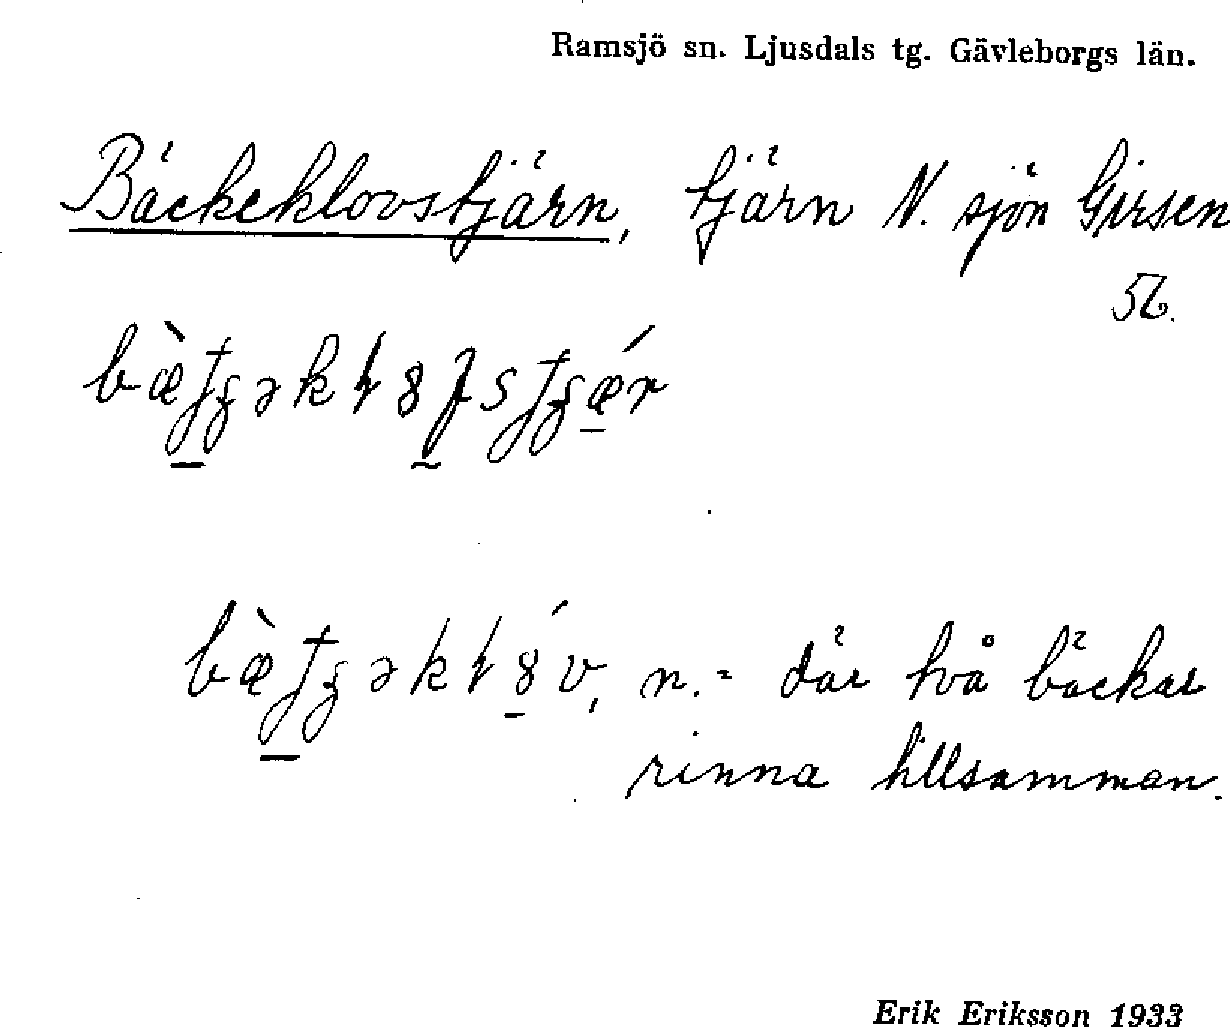 Ramsjö sn. Ljusdals tg. Gävleborgs län.
Bäckeklovstjärn, tjärn N. sjön Girsen
56.
n. = där två bäckar
rinna tillsamman.
Erik Eriksson 1933